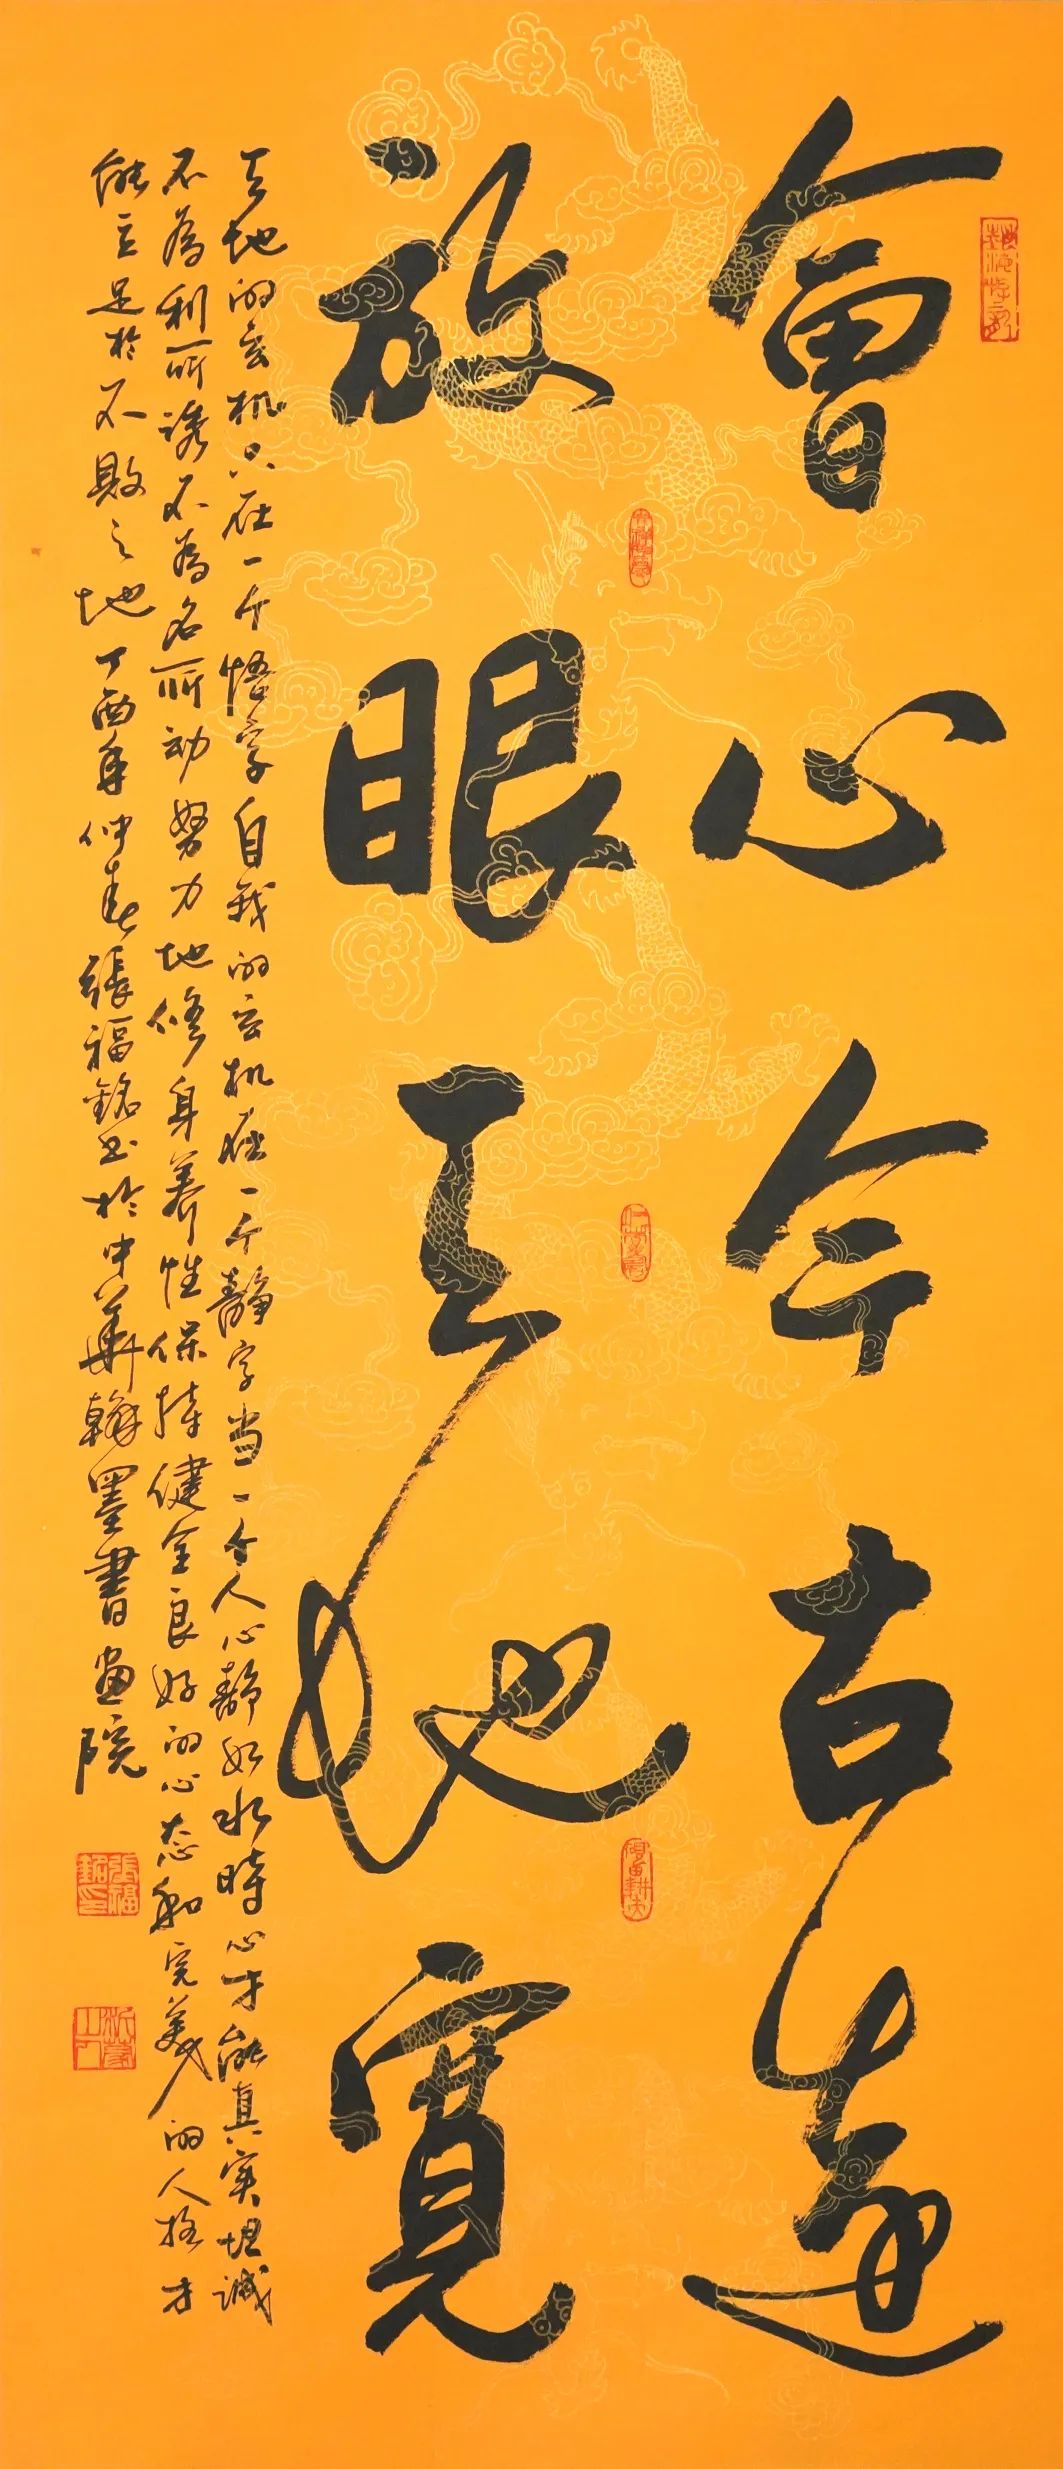 會心今古遠
放眼天地寬
天地的玄机只在一个悟字自我的玄机在一个靜字当一个人心靜如水時心才能真实坦誠
不為利所誘不為名所动努力地修身养性保持健全良好的心态和完美的人格才
能立足於不敗之地丁酉年仲春張福銘书於中華翰墨書画院
張福銘印
沂蒙山人